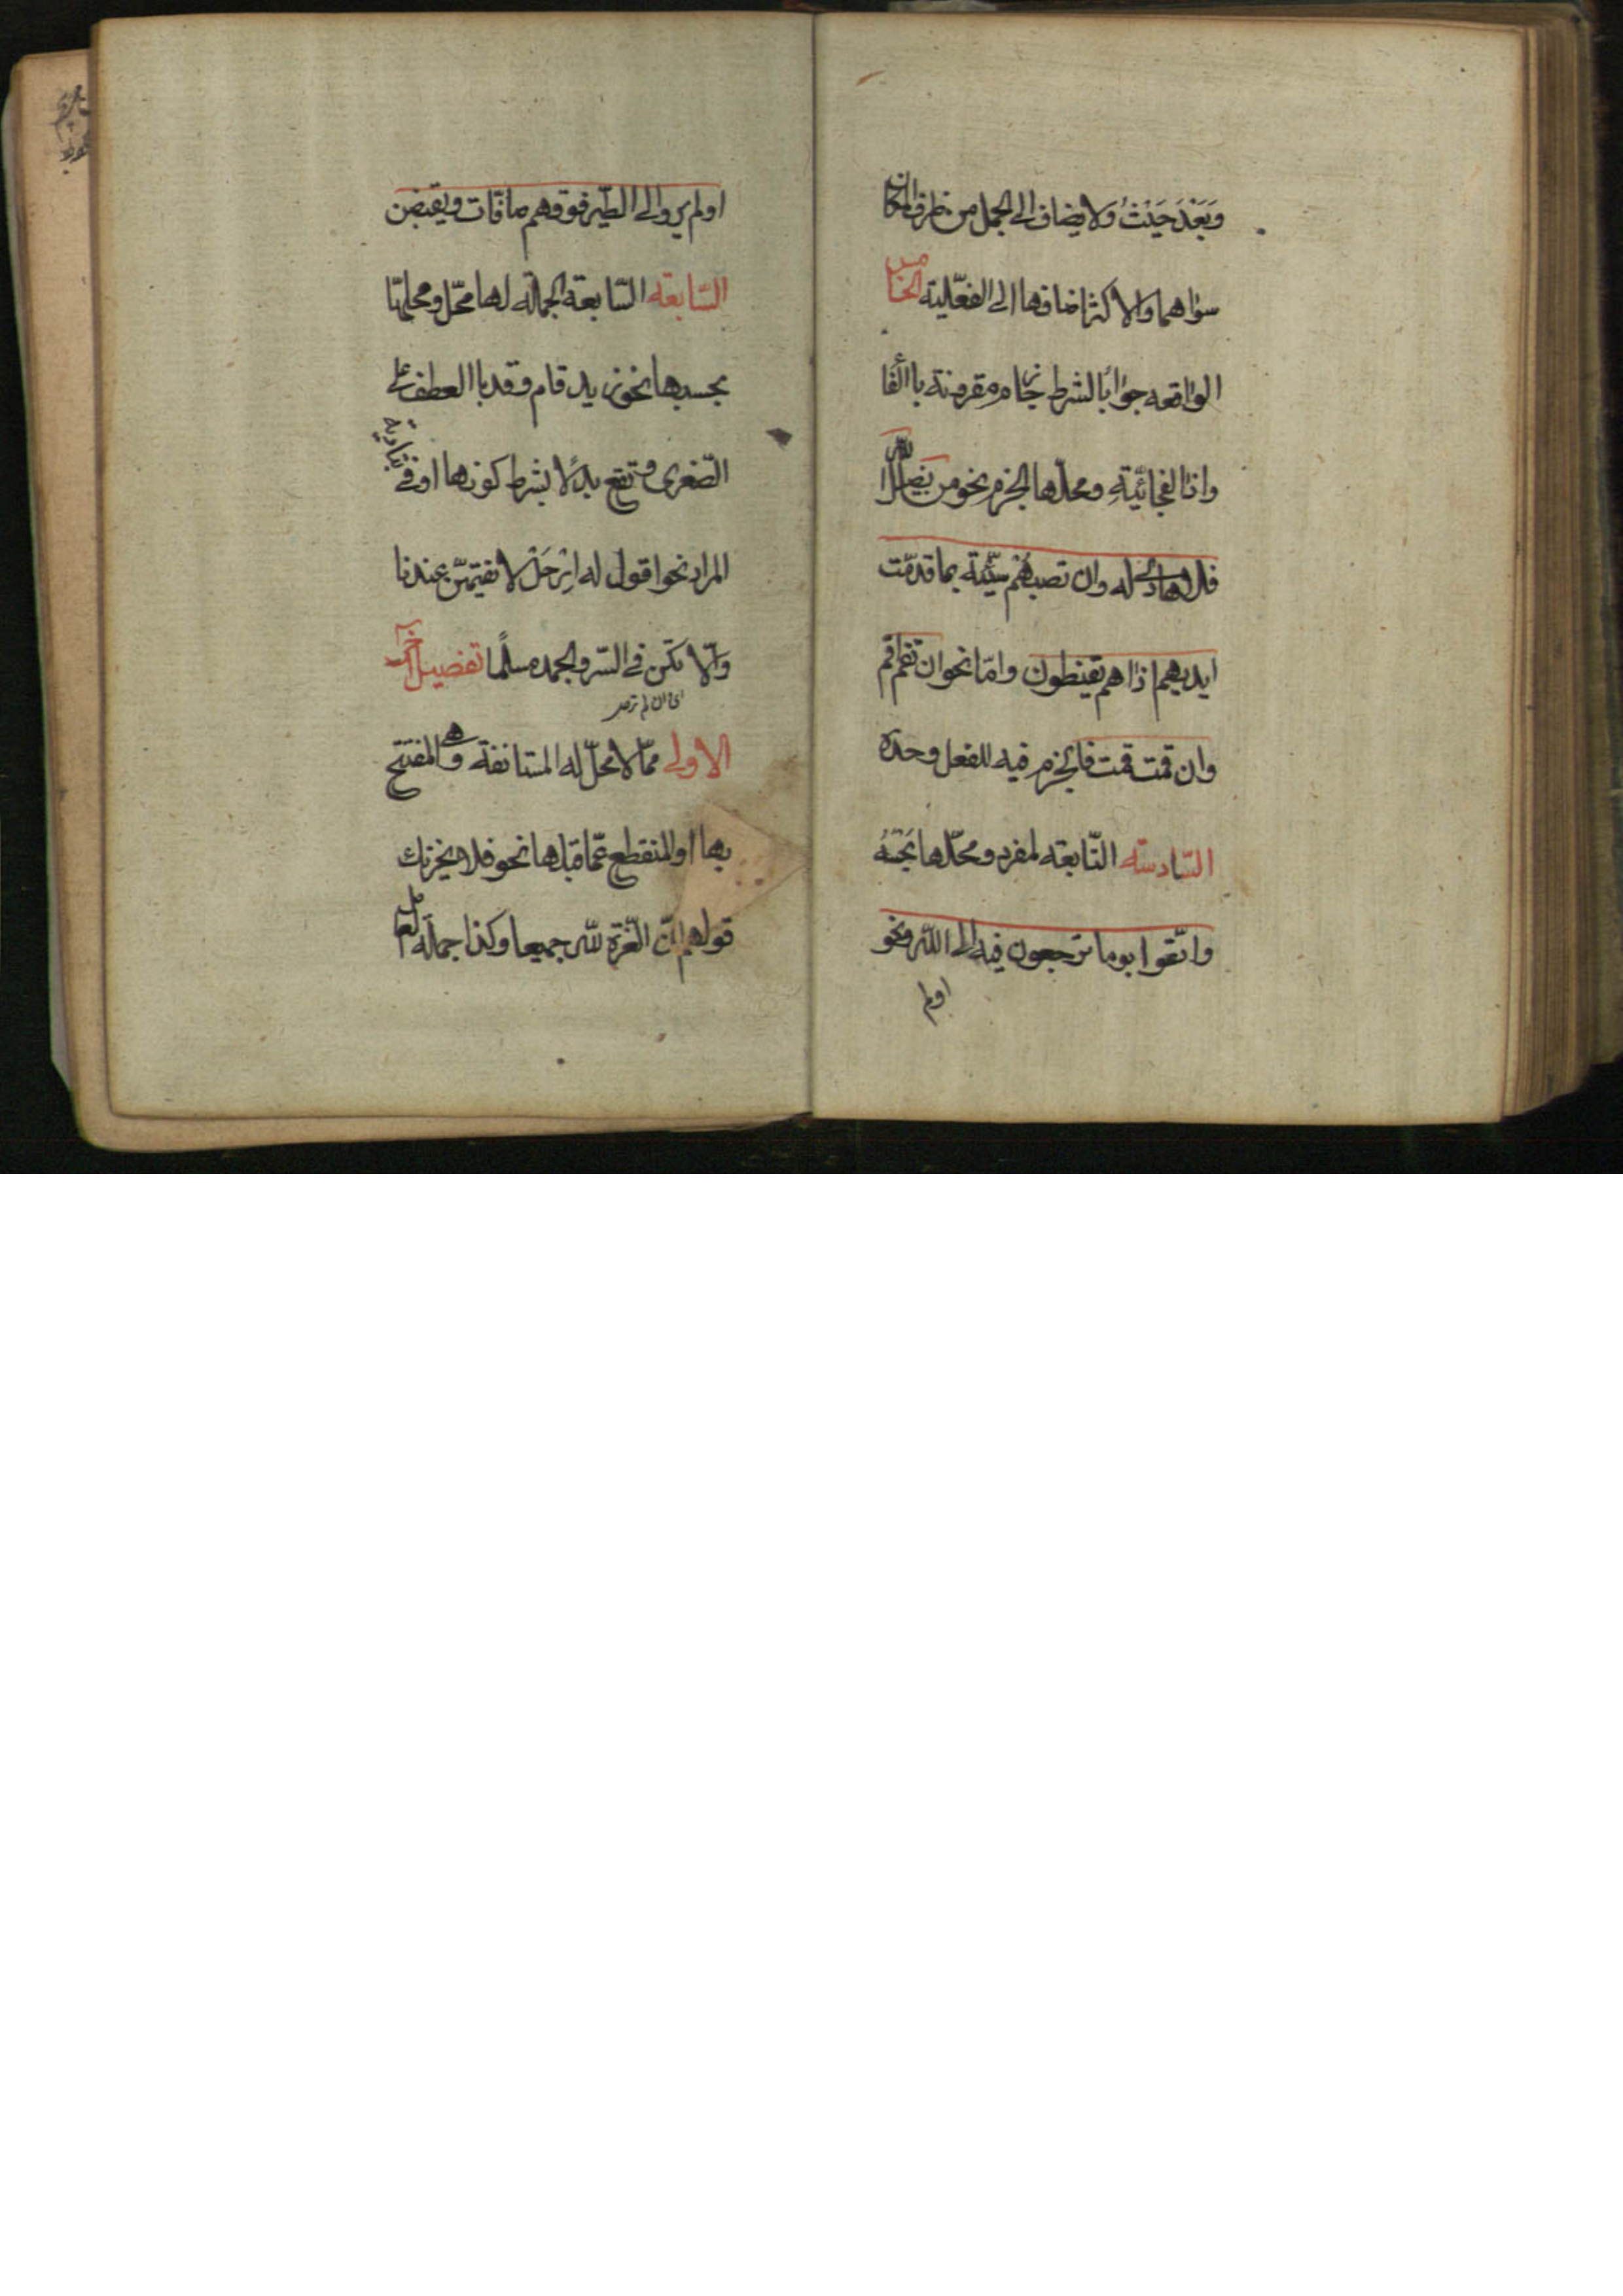 وَبَعْدَ حَيْثُ ولا يضاف الى الجمل من ظرف المكان
سواهما والاكثر اضافها الى الفعّلية الخامس
الواقعه جوابًا لشرط جازم مقرونة باالفا
واذا الفجائيّةِ ومحلّها الجزم نحو من يضلل اللّٰه
فلا هادى له وان تصبهُم سيّئة بما قدمّت
ايديهم اذا هم يقنطون وامّا نحو ان تقم اقم
وان قمت قمت فالجزم فيه للفعل وحده
السّادسته التّابعته لمفرد ومحلّها بحَسَبه
واتّقوا يوما ترجعون فيه الى اللّٰه ونحو
اولم
اولم يروالى الطّير فوقهم صافّات ويقبضن
السّابعته التّابعته لجملة لها محّل ومحلهّا
بحسبها نحو زيد قام وقعد باالعطف على
الصّغرى وتقع بدلًا بشرط كونها اوفى
المراد نحو اقول له اِرْحَلْ لا تقيمّن عندنا
والّا فكن فى السّر والجهر مسلمًا تفضيل آخر
اى وان لم ترحل
الاولى ممّا لا محلّ له المستانفة وهى المفتتح
بها او المنقطع عمّا قبلها نحو فلا يحزنك
قولهم انّ العّزة للّٰه جميعا وكذا جملة العامل